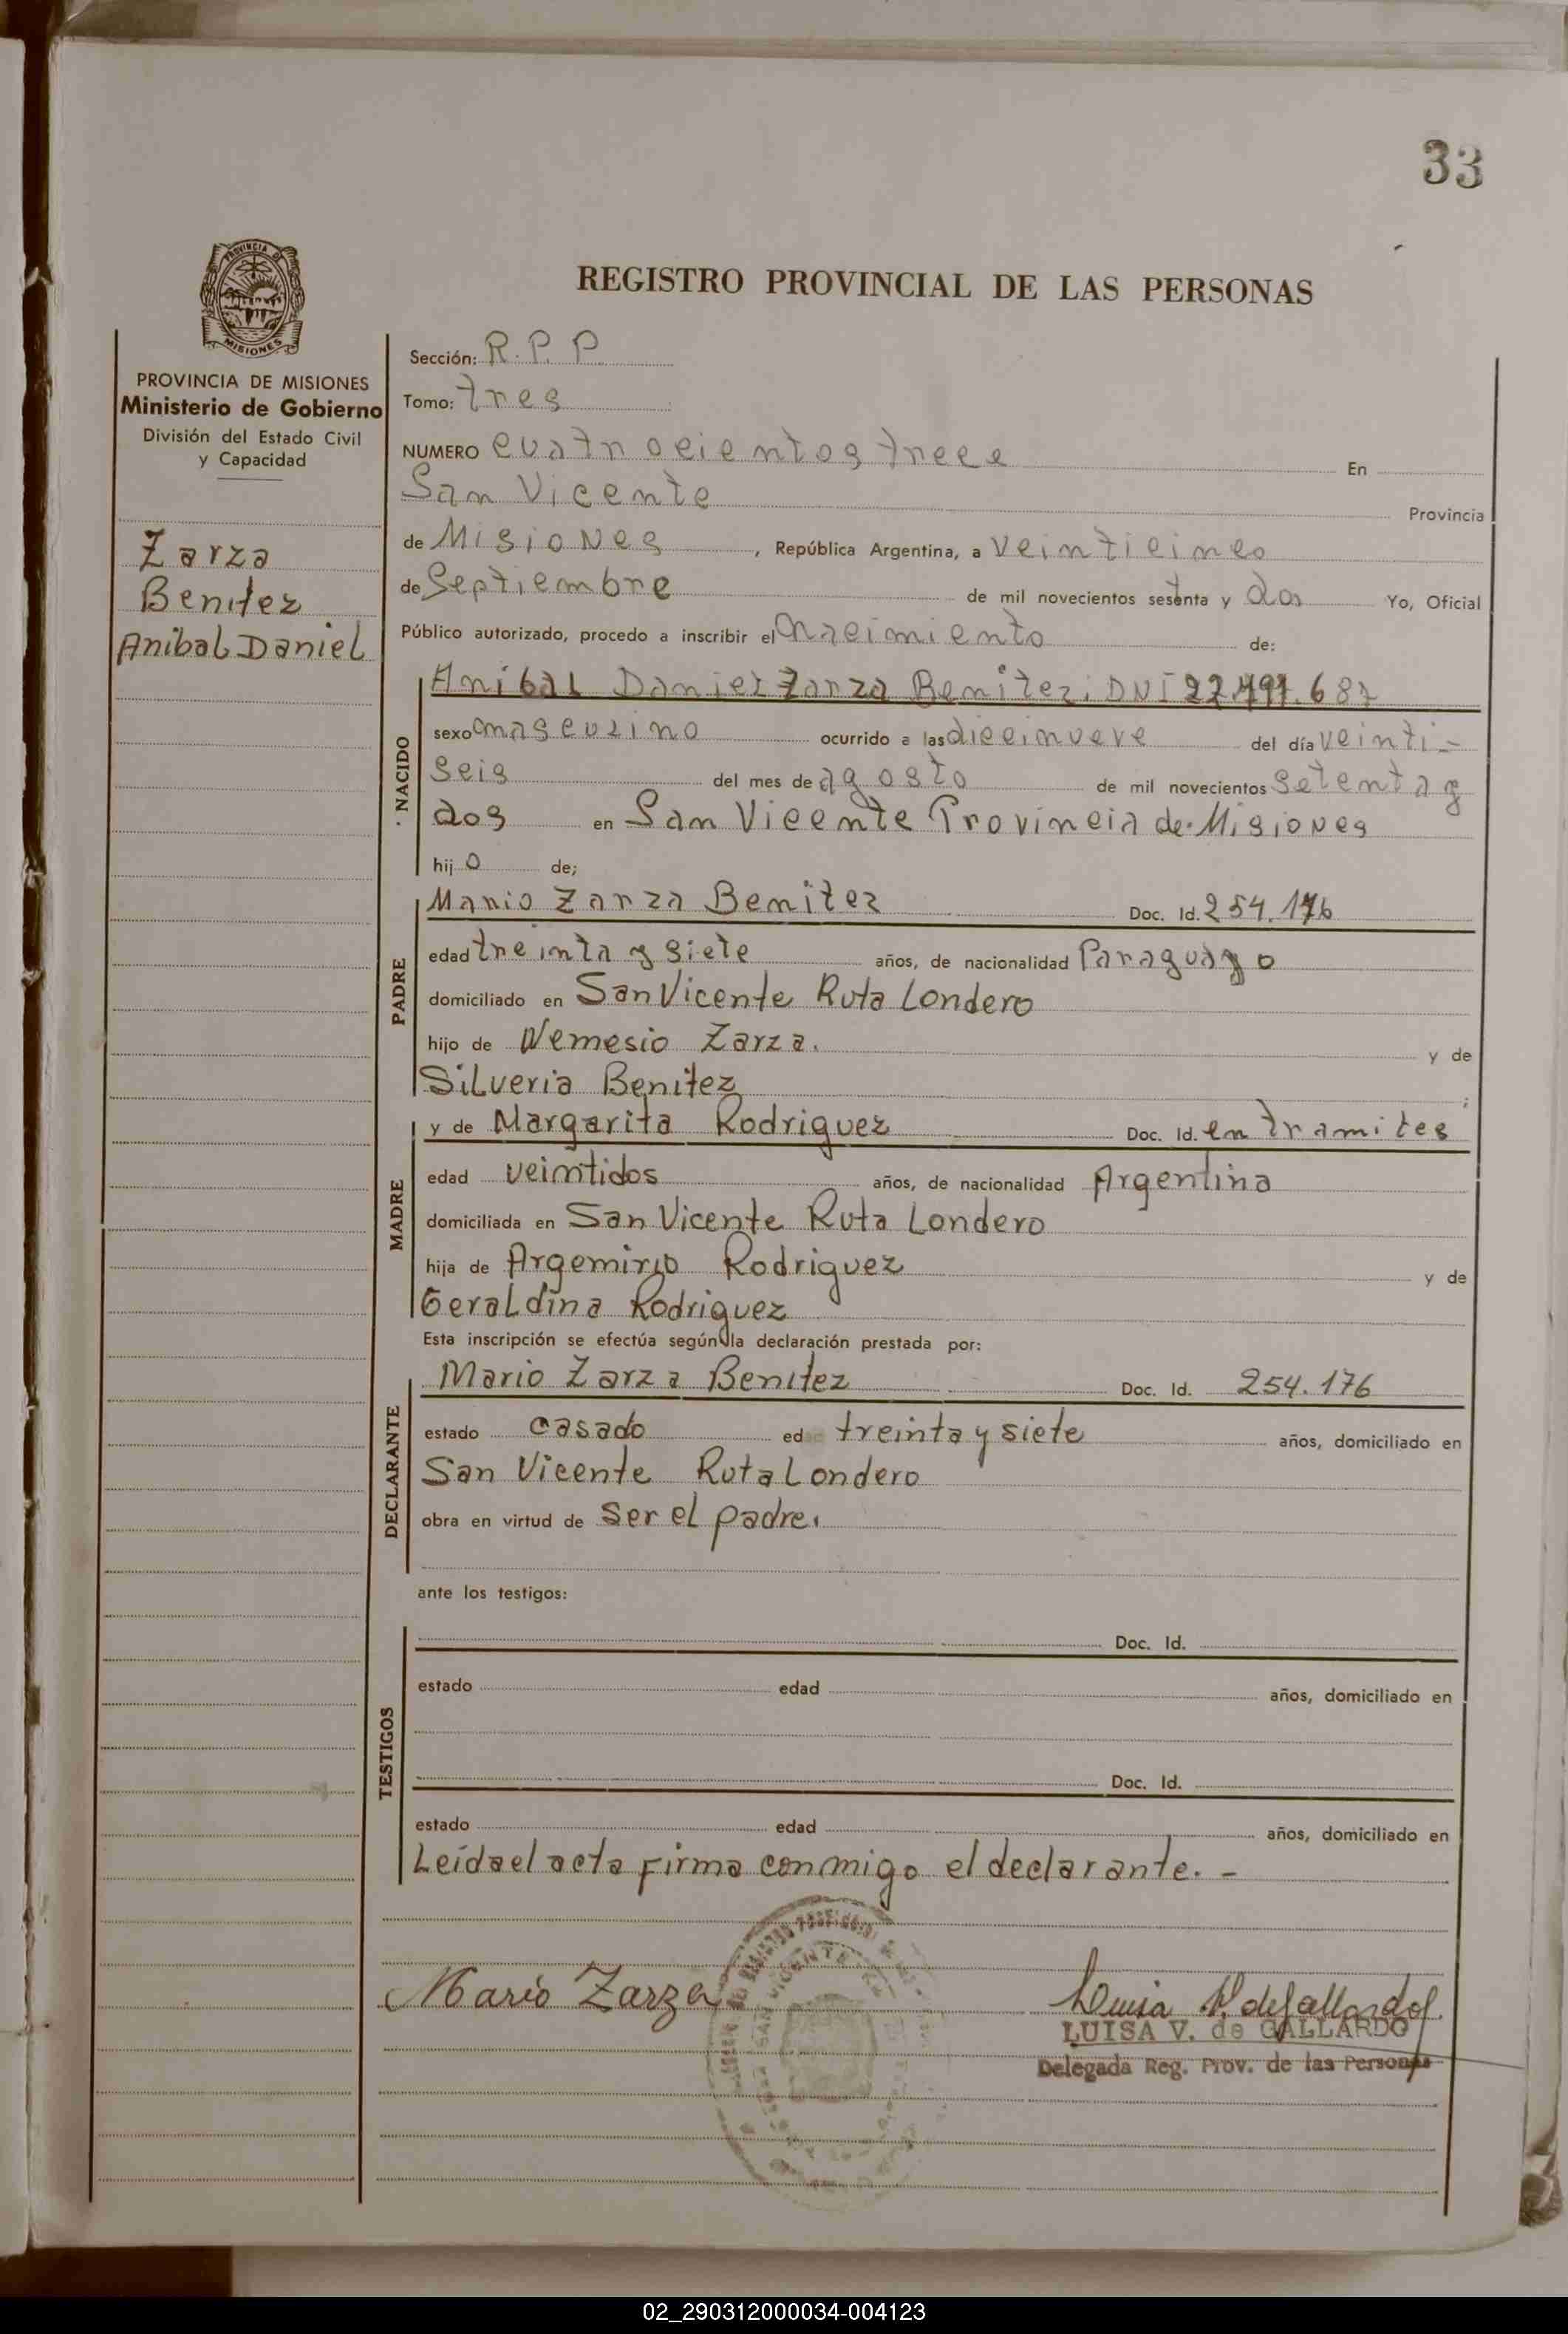 33
PROVINCIA DE
MISIONES
REGISTRO PROVINCIAL DE LAS PERSONAS
PROVINCIA DE MISIONES
Ministerio de Gobierno
División del Estado Civil
y Capacidad
Zarza
Benitez
Anibal Daniel
Sección: R.P.P.
Tomo: tres
NUMERO cuatrocientos trece En
San Vicente Provincia
de Misiones, República Argentina, a veinticinco
de Septiembre de mil novecientos setenta y dos Yo, Oficial
Público autorizado, procedo a inscribir el nacimiento de:
NACIDO
Anibal Daniel Zarza Benitez. DNI
sexo masculino ocurrido a las diecinueve del día veinti-
seis del mes de agosto de mil novecientos setenta y
dos en San Vicente Provincia de Misiones
hijo de;
PADRE
Mario Zarza Benitez Doc. Id. 254.176
edad treinta y siete años, de nacionalidad Paraguayo
domiciliado en San Vicente Ruta Londero
hijo de Nemesio Zarza. y de
Silveria Benitez;
MADRE
y de Margarita Rodriguez Doc. Id. en tramites
edad veintidos años, de nacionalidad Argentina
domiciliada en San Vicente Ruta Londero
hija de Argemiro Rodriguez y de
Geraldina Rodriguez
Esta inscripción se efectúa según la declaración prestada por:
DECLARANTE
Mario Zarza Benitez Doc. Id. 254.176
estado casado edad treinta y siete años, domiciliado en
San Vicente Ruta Londero
obra en virtud de ser el padre.
ante los testigos:
TESTIGOS
Doc. Id.
estado edad años, domiciliado en
Doc. Id.
estado edad años, domiciliado en
Leida el acta firma conmigo el declarante. -
Mario Zarza
Luisa V. de Gallardo
LUISA V. de GALLARDO
Delegada Reg. Prov. de las Personas
02_290312000034-004123